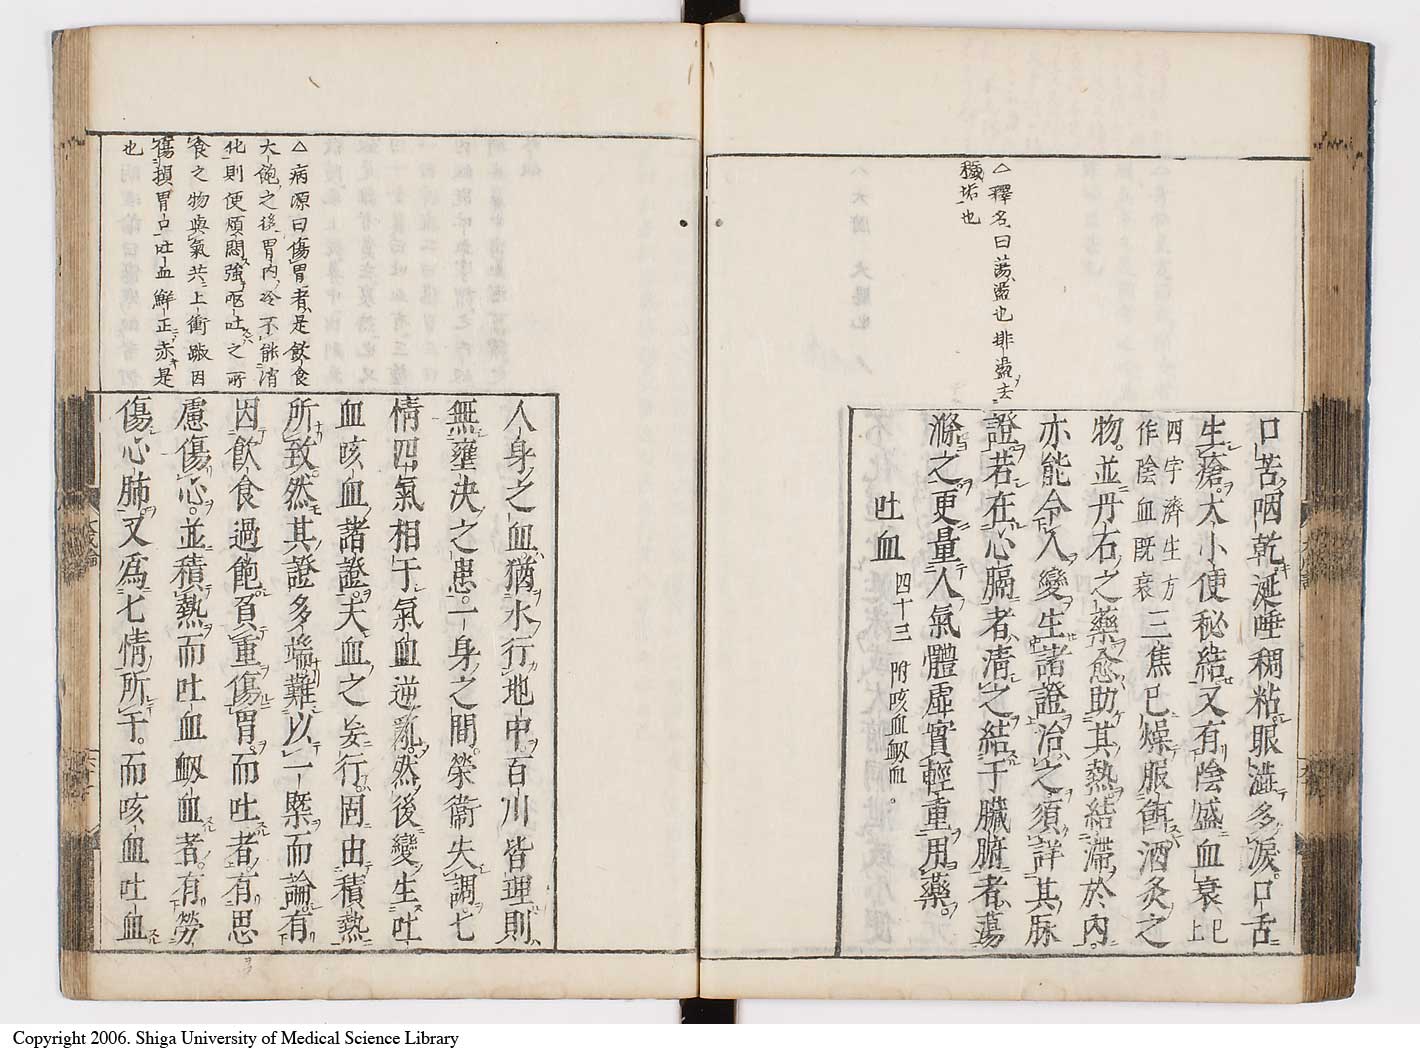 △釋名曰蕩盪也排盪去
穢垢也
口苦咽乾涎唾稠粘眼澁多淚口舌
生瘡大小便秘結又有陰盛血衰已上
四字濟生方
作陰血既衰三焦已燥服餌酒炙之
物並丹石之藥愈助其熱結滯於內
亦能令人變生諸證治之須詳其脉
證若在心膈者清之結于臟腑者蕩
滌之更量人氣體虛實輕重用藥
吐血 四十三 附咳血衂血
△病源曰傷胃者是飲食
大飽之後胃内冷不能消
化則便煩悶強嘔吐之所
食之物與氣共上衝蹴因
傷損胃口吐血鮮正赤是
也
人身之血猶水行地中百川皆理則
無壅決之患一身之間榮衞失調七
情四氣相于氣血逆亂然後變生吐
血咳血諸證夫血之妄行固由積熱
所致然其證多端難以一槩而論有
因飲食過飽負重傷胃而吐者有思
慮傷心並積熱而吐血衂血者有勞
傷心肺又為七情所干而咳血吐血
Copyright 2006. Shiga University of Medical Science Library